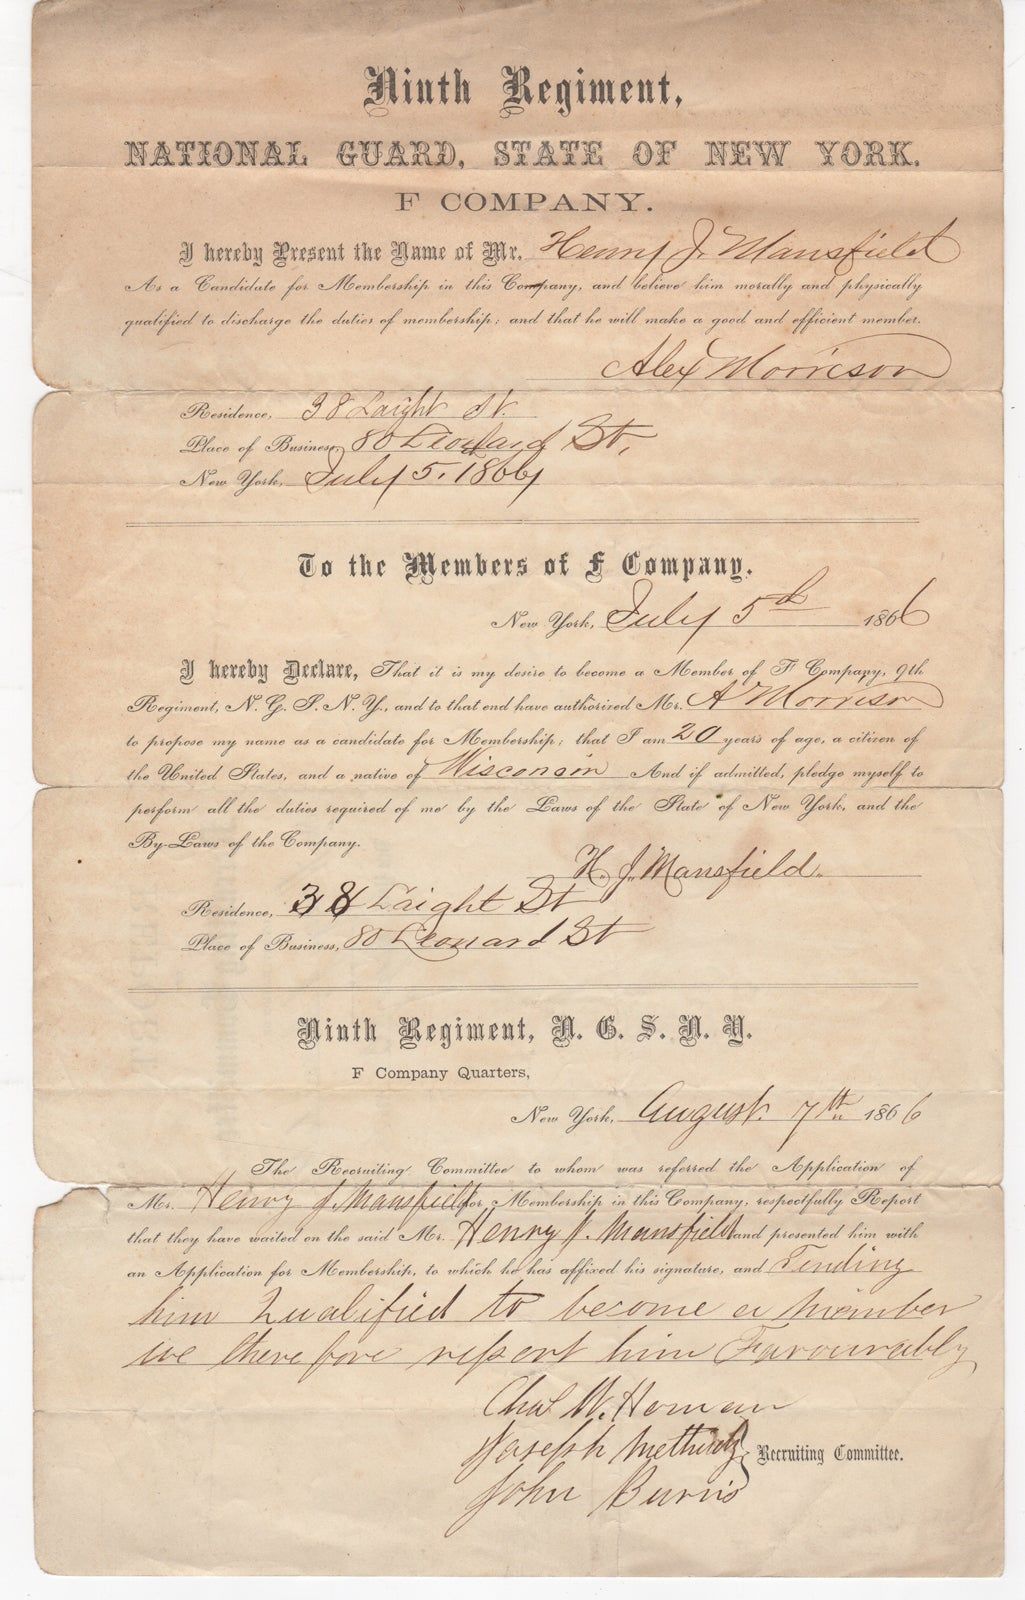 Ninth Regiment,
NATIONAL GUARD, STATE OF NEW YORK.
F COMPANY.
I hereby Present the Name of Mr. Henry J. Mansfield
As a Candidate for Membership in this Company, and believe him morally and physically
qualified to discharge the duties of membership; and that he will make a good and efficient member.
Alex Morrison
Residence, 38 Laight St.
Place of Business, 80 Leonard St,
New York, July 5. 1866
To the Members of F Company.
New York, July 5th 1866
I hereby Declare, That it is my desire to become a Member of F Company, 9th
Regiment, N. G. S. N. Y., and to that end have authorized Mr. A Morrison
to propose my name as a candidate for Membership; that I am 20 years of age, a citizen of
the United States, and a native of Wisconsin And if admitted, pledge myself to
perform all the duties required of me by the Laws of the State of New York, and the
By-Laws of the Company.
H. J. Mansfield.
Residence, 38 Laight St
Place of Business, 80 Leonard St
Ninth Regiment, N. G. S. N. Y.
F Company Quarters,
New York, August. 7th 1866
The Recruiting Committee to whom was referred the Application of
Mr. Henry J. Mansfield for Membership in this Company, respectfully Report
that they have waited on the said Mr. Henry J. Mansfield and presented him with
an Application for Membership, to which he has affixed his signature, and Finding
him Qualified to become a member
we therefore report him Favourably
Chas W. Homan
Joseph
John Burns
Recruiting Committee.